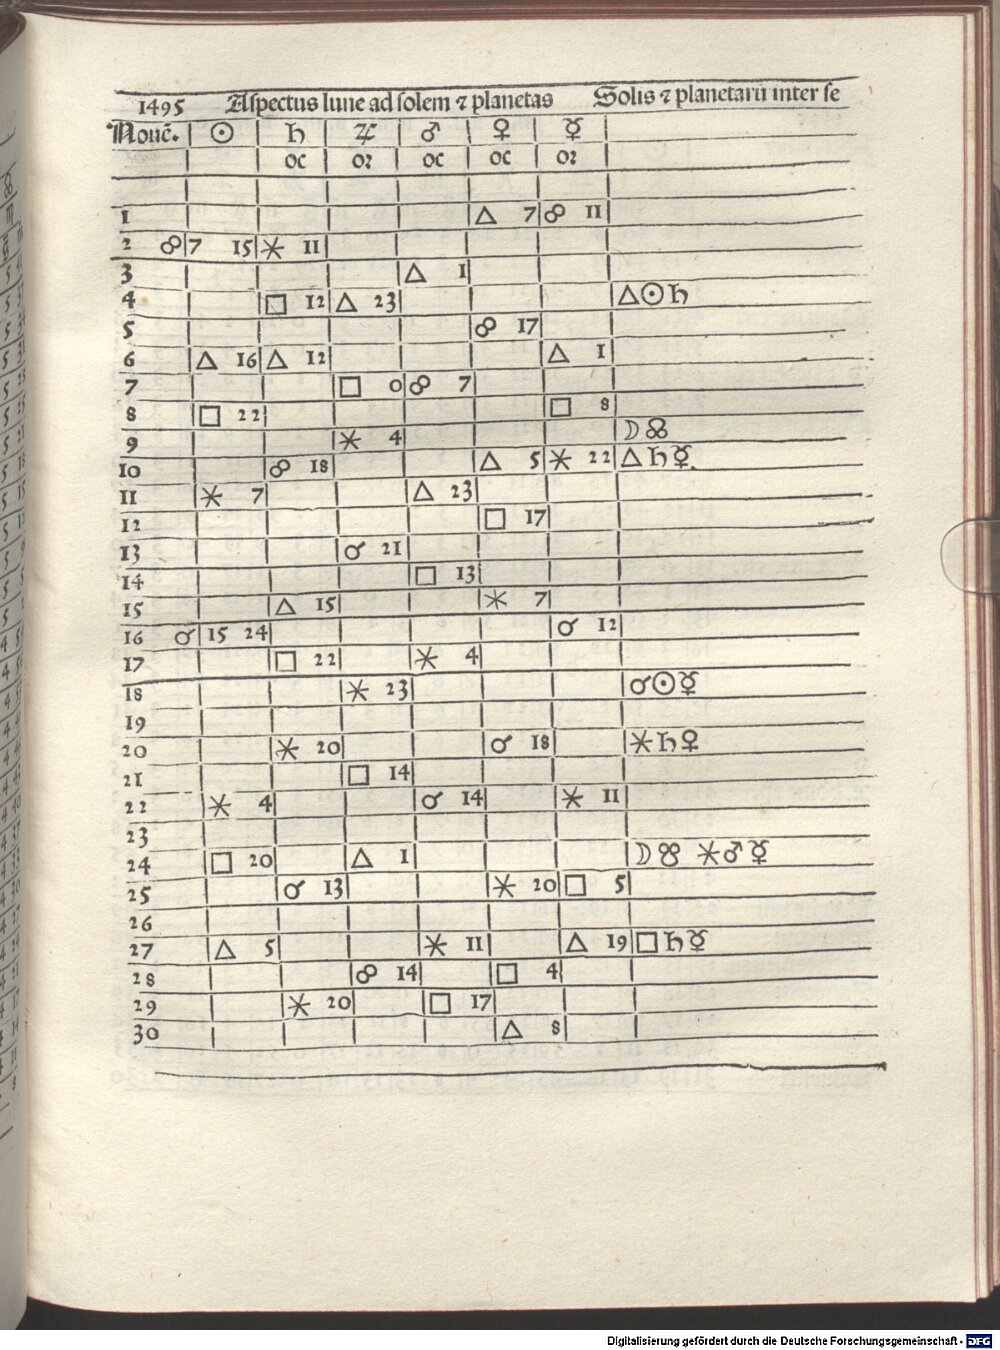 1495 Aspectus lune ad solem ⁊ planetas Solis ⁊ planetarū inter se
Nouē. ☉ ♄ ♃ ♂ ♀ ☿
oc oꝛ oc oc oꝛ
1 △ 7 ☍ 11
2 ☍ 7 15 ⚹ 11
3 △ 1
4 □ 12 △ 23 △☉♄
5 ☍ 17
6 △ 16 △ 12 △ 1
7 □ 0 ☍ 7
8 □ 22 □ 8
9 ⚹ 4 ☽☊
10 ☍ 18 △ 5 ⚹ 22 △♄☿.
11 ⚹ 7 △ 23
12 □ 17
13 ☌ 21
14 □ 13
15 △ 15 ⚹ 7
16 ☌ 15 24 ☌ 12
17 □ 22 ⚹ 4
18 ⚹ 23 ☌☉☿
19
20 ⚹ 20 ☌ 18 ⚹♄♀
21 □ 14
22 ⚹ 4 ☌ 14 ⚹ 11
23
24 □ 20 △ 1 ☽☋ ⚹♂☿
25 ☌ 13 ⚹ 20 □ 5
26
27 △ 5 ⚹ 11 △ 19 □♄☿
28 ☍ 14 □ 4
29 ⚹ 20 □ 17
30 △ 8
Digitalisierung gefördert durch die Deutsche Forschungsgemeinschaft - DFG